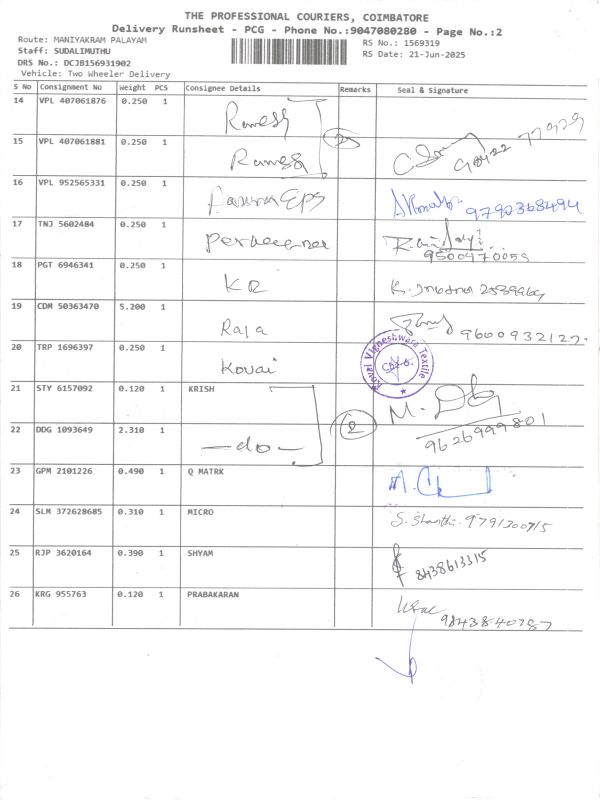 THE PROFESSIONAL COURIERS, COIMBATORE
Delivery Runsheet - PCG - Phone No.:9047080280 - Page No.:2
Route: MANIYAKRAM PALAYAM
Staff: SUDALIMUTHU
DRS No.: DCJB156931902
Vehicle: Two Wheeler Delivery
RS No.: 1569319
RS Date: 21-Jun-2025
S No Consignment No Weight PCS Consignee Details Remarks Seal & Signature
14 VPL 407061876 0.250 1 Ramesh
15 VPL 407061881 0.250 1 Ramesh 2 98422 77929
16 VPL 952565331 0.250 1 EPS 9790368494
17 TNJ 5602484 0.250 1 9500470055
18 PGT 6946341 0.250 1 KR 2539969
19 CDM 50363470 5.200 1 Raja 9600932122
20 TRP 1696397 0.250 1 Kovai Kovai Vigneshwara Textile
21 STY 6157092 0.120 1 KRISH
22 DDG 1093649 2.310 1 -do- 2 9626999801
23 GPM 2101226 0.490 1 Q MATRK
24 SLM 372628685 0.310 1 MICRO S. Shanthi 9791300715
25 RJP 3620164 0.390 1 SHYAM 8438613315
26 KRG 955763 0.120 1 PRABAKARAN 9843840787